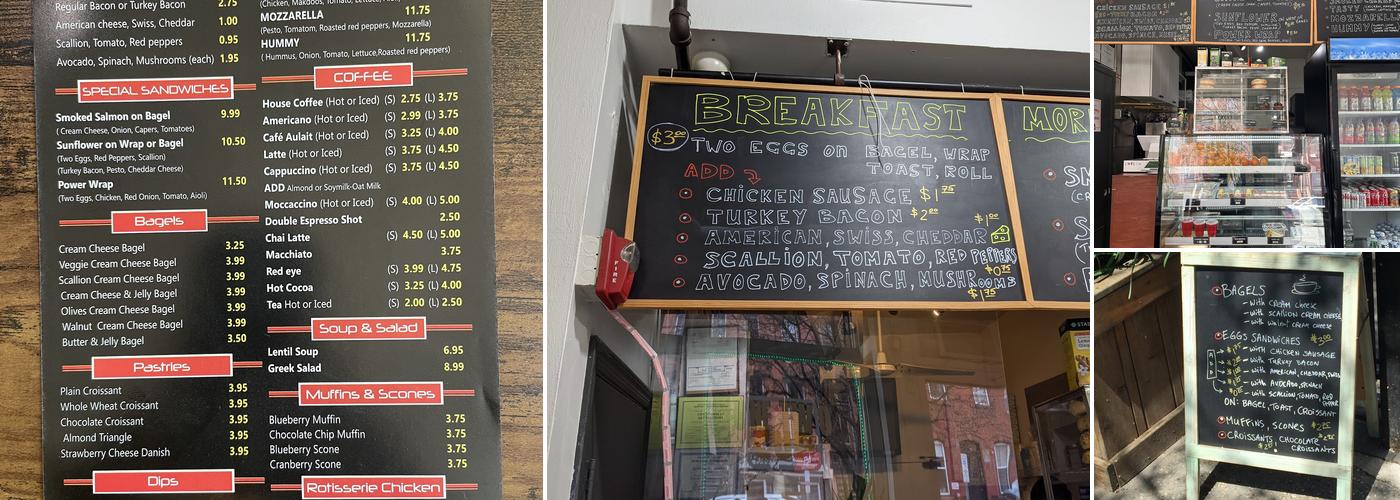 Regular Bacon or Turkey Bacon 2.75
American cheese, Swiss, Cheddar 1.00
Scallion, Tomato, Red peppers 0.95
Avocado, Spinach, Mushrooms (each) 1.95
SPECIAL SANDWICHES
Smoked Salmon on Bagel 9.99
( Cream Cheese, Onion, Capers, Tomatoes)
Sunflower on Wrap or Bagel 10.50
(Two Eggs, Red Peppers, Scallion)
(Turkey Bacon, Pesto, Cheddar Cheese)
Power Wrap 11.50
(Two Eggs, Chicken, Red Onion, Tomato, Aioli)
Bagels
Cream Cheese Bagel 3.25
Veggie Cream Cheese Bagel 3.99
Scallion Cream Cheese Bagel 3.99
Cream Cheese & Jelly Bagel 3.99
Walnut Cream Cheese Bagel 3.99
Butter & Jelly Bagel 3.50
Pastries
Plain Croissant 3.95
Whole Wheat Croissant 3.95
Chocolate Croissant 3.95
Almond Triangle 3.95
Strawberry Cheese Danish 3.95
Dips
MOZZARELLA 11.75
(Pesto, Tomatom, Roasted red peppers, Mozzarella)
HUMMY 11.75
( Hummus, Onion, Tomato, Lettuce,Roasted red peppers)
COFFEE
House Coffee (Hot or Iced) (S) 2.75 (L) 3.75
Americano (Hot or Iced) (S) 2.99 (L) 3.75
Café Aulait (Hot or Iced) (S) 3.25 (L) 4.00
Latte (Hot or Iced) (S) 3.75 (L) 4.50
Cappuccino (Hot or Iced) (S) 3.75 (L) 4.50
ADD Almond or Soymilk-Oat Milk
Moccaccino (Hot or Iced) (S) 4.00 (L) 5.00
Double Espresso Shot 2.50
Chai Latte (S) 4.50 (L) 5.00
Macchiato 3.75
Red eye (S) 3.99 (L) 4.75
Hot Cocoa (S) 3.25 (L) 4.00
Tea Hot or Iced (S) 2.00 (L) 2.50
Soup & Salad
Lentil Soup 6.95
Greek Salad 8.99
Muffins & Scones
Blueberry Muffin 3.75
Chocolate Chip Muffin 3.75
Blueberry Scone 3.75
Cranberry Scone 3.75
Rotisserie Chicken
BREAKFAST
$3.00 TWO EGGS ON BAGEL, WRAP
TOAST, ROLL
ADD
CHICKEN SAUSAGE $1.75
TURKEY BACON $2.00
AMERICAN, SWISS, CHEDDAR $1.00
SCALLION, TOMATO, RED PEPPERS $0.75
AVOCADO, SPINACH, MUSHROOMS $1.75
FIRE
SUNFLOWER
POWER WRAP
BAGELS
- with CREAM cheese
- with SCALLION CREAM CHEESE
- with walnut CREAM CHEESE
EGGS SANDWICHES $3.00
- with CHICKEN SAUSAGE
- with TURKEY BACON
- with AMERICAN, CHEDDAR, SWISS
- with AVOCADO, SPINACH
- with SCALLION, TOMATO, RED PEPPER
ON: BAGEL, TOAST, CROISSANT
MUFFINS, SCONES
CROISSANTS, CHOCOLATE
CROISSANTS